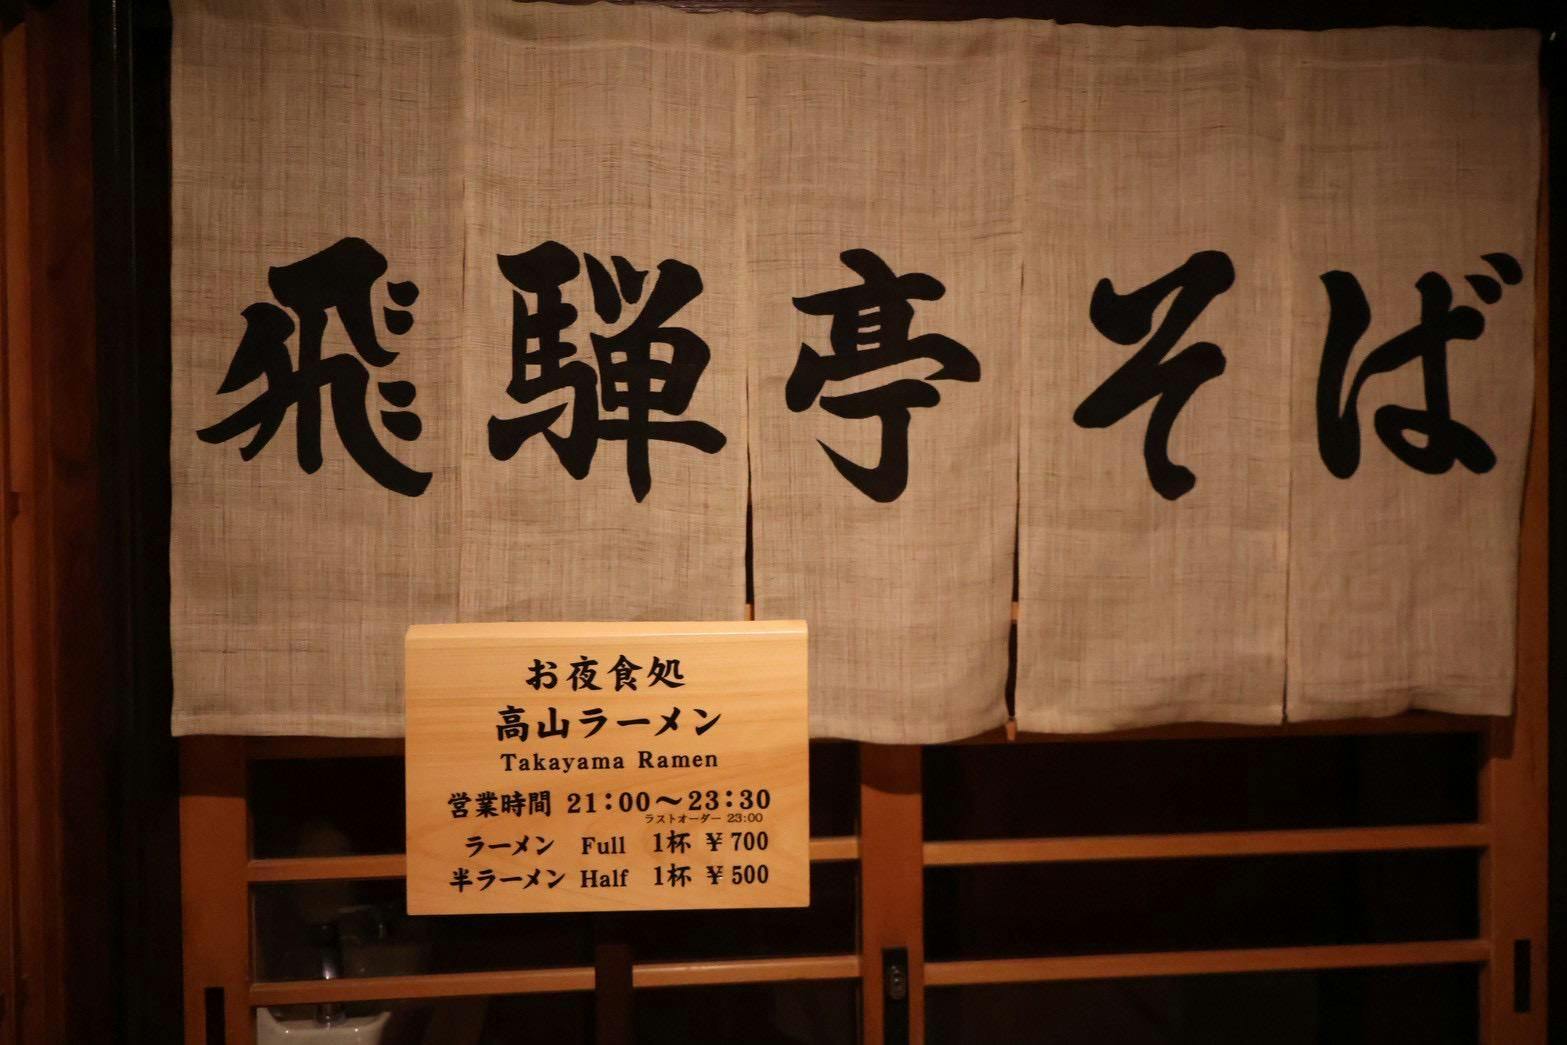 飛騨亭そば
お夜食処
高山ラーメン
Takayama Ramen
営業時間 21:00～23:30
ラストオーダー 23:00
ラーメン Full 1杯 ¥700
半ラーメン Half 1杯 ¥500